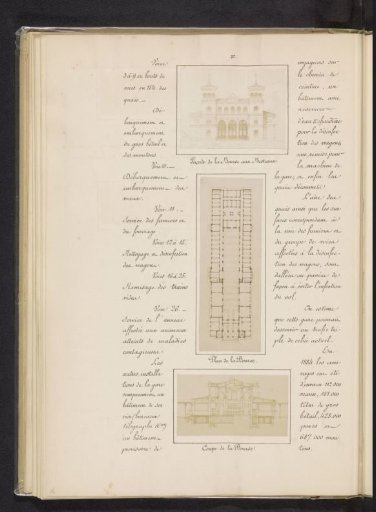 Voies
3 à 9 en bouts de
voies en tête des
quais. —
Dé-
barquement et
embarquement
du gros bétail et
des moutons.
Voie 10. —
Débarquement et
embarquement des
veaux.
Voie 11. —
Service des fumiers et
du fourrage
Voies 12 à 15.
Nettoyage et désinfection
des wagons.
Voies 16 à 25.
Remisage des trains
vides
Voie 26. —
Service de l'annexe
affectée aux animaux
atteints de maladies
contagieuses.
Les
autres installa-
tions de la gare
comprennent un
bâtiment de ser-
vice (bureaux
télégraphe &a)
un bâtiment
provisoire de
Façade de la Bourse aux Bestiaux
Plan de la Bourse.
Coupe de la Bourse
voyageurs sur
le chemin de
ceinture, un
bâtiment avec
réservoir
d'eau et chaudière
pour la désinfec-
tion des wagons
une remise pour
la machine de
la gare, et enfin les
quais découverts.
L'aire des
quais ainsi que les sur-
faces correspondant à
la voie des fumiers et
au groupe de voies
affectées à la désinfec-
tion des wagons, sont
dallées ou pavées de
façon à éviter l'infection
du sol.
On estime
que cette gare pourrait
desservir un trafic tri-
ple de celui actuel.
En
1884 les arri-
vages